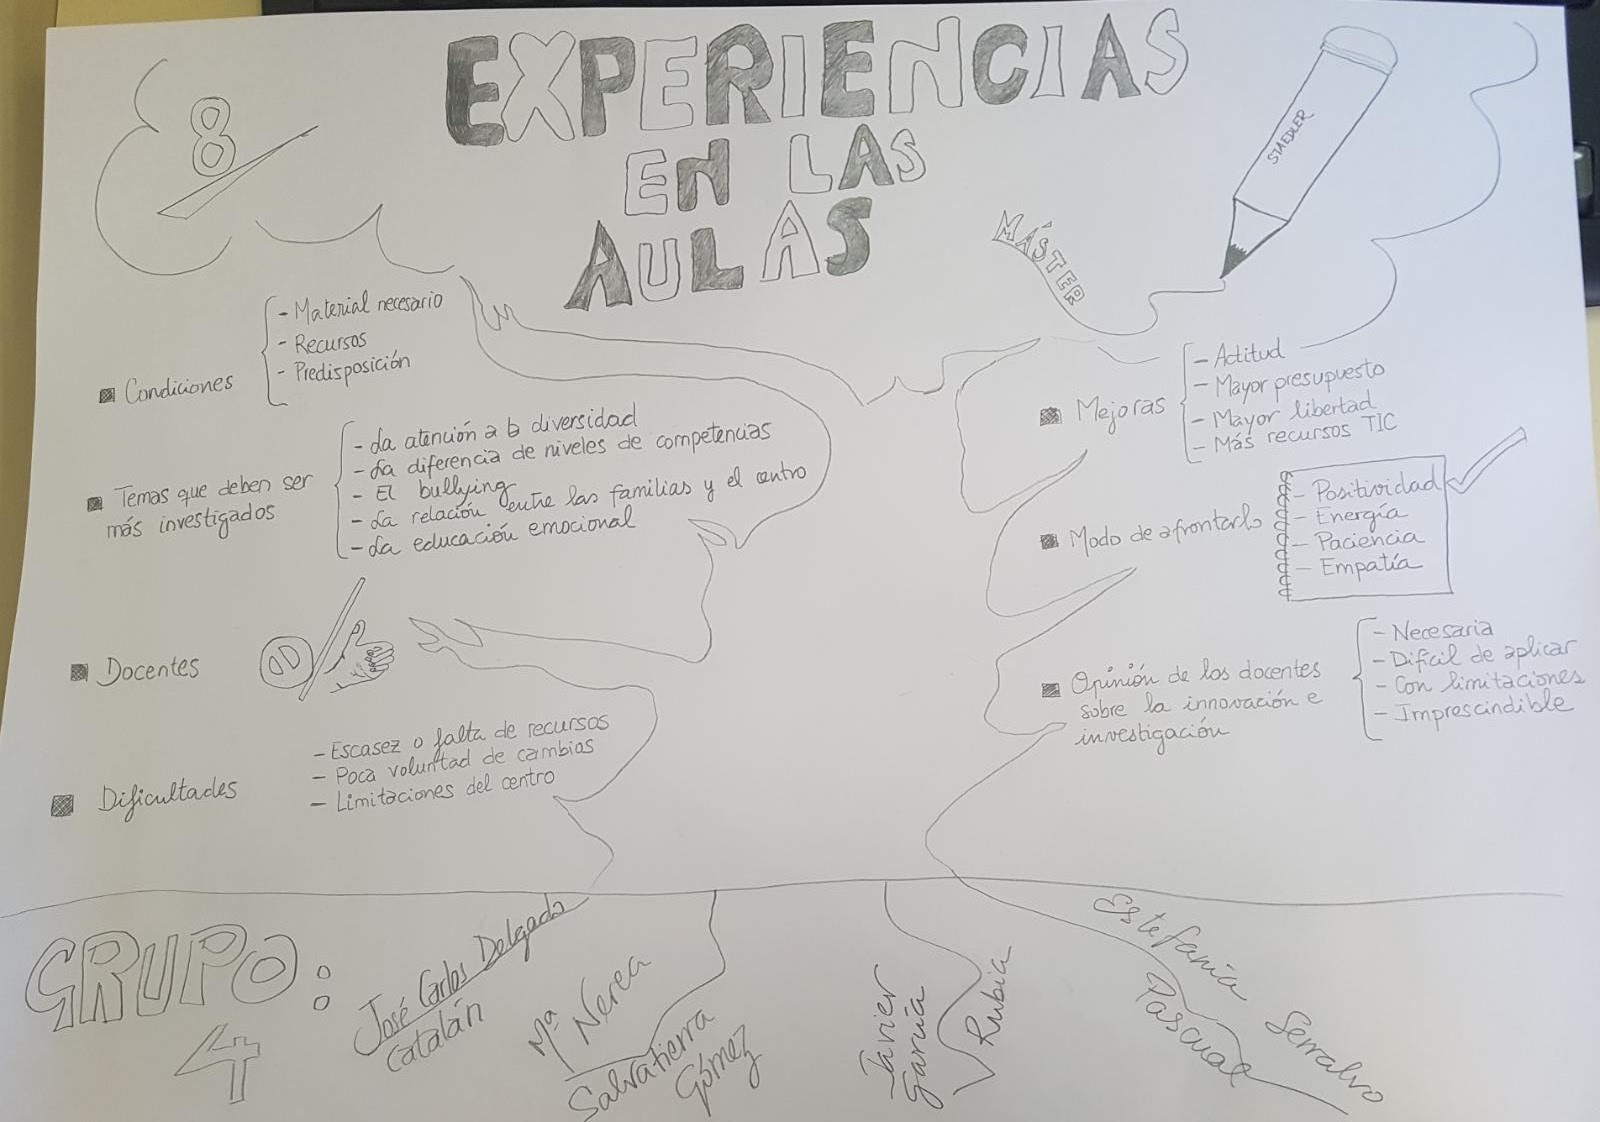 8
EXPERIENCIAS
EN LAS
AULAS
MÁSTER
STAEDLER
Condiciones
- Material necesario
- Recursos
- Predisposición
Temas que deben ser
más investigados
- La atención a la diversidad
- La diferencia de niveles de competencias
- El bullying
- La relación entre las familias y el centro
- La educación emocional
Docentes
Dificultades
- Escasez o falta de recursos
- Poca voluntad de cambios
- Limitaciones del centro
Mejoras
- Actitud
- Mayor presupuesto
- Mayor libertad
- Más recursos TIC
Modo de afrontarlo
- Positividad
- Energía
- Paciencia
- Empatía
Opinión de los docentes
sobre la innovación e
investigación
- Necesaria
- Difícil de aplicar
- Con limitaciones
- Imprescindible
GRUPO:
4
José Carlos Delgado
Catalán
Mª Nerea
Salvatierra
Gómez
Javier
García
Rubia
Estefanía Serralvo
Pascual